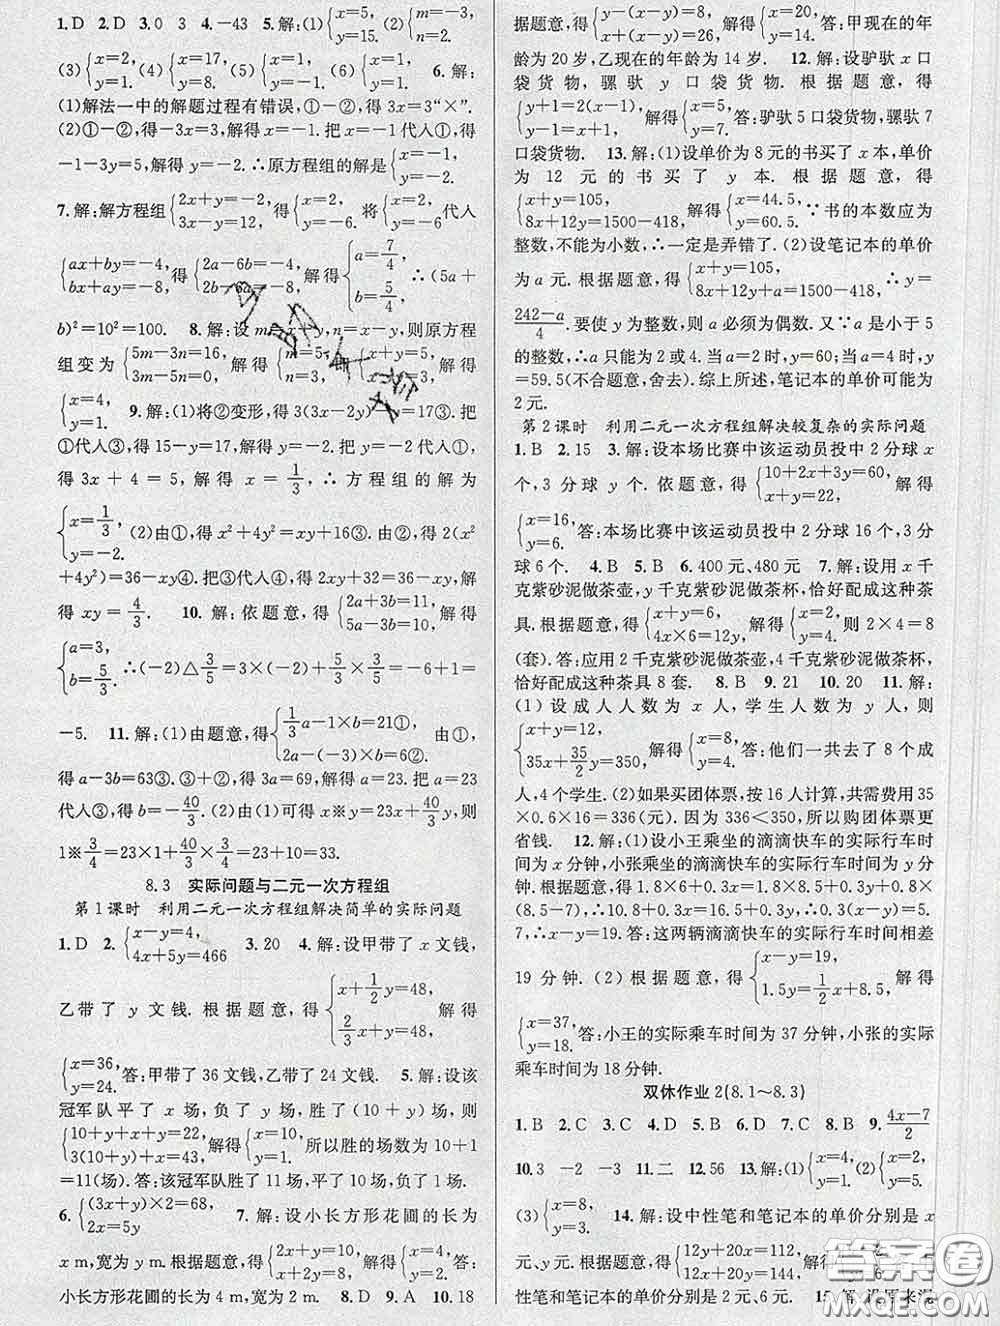 1.D 2.D 3.0 3 4.-43 5.解:(1){x=5, y=15. (2){m=-3, n=2.
(3){x=2, y=1. (4){x=17, y=8. (5){x=1, y=2. (6){x=4, y=1. 6.解:
(1)解法一中的解题过程有错误,①-②,得3x=3“×”.
(2)①-②,得-3x=3,解得x=-1.把x=-1代入①,得
-1-3y=5,解得y=-2.∴原方程组的解是{x=-1, y=-2.
7.解:解方程组{2x+y=-2, 3x-y=-12, 得{x=-2, y=-6. 将{x=-2, y=-6代入
{ax+by=-4, bx+ay=-8, 得{2a-6b=-4, 2b-6a=-8, 解得{a=7/4, b=5/4. ∴(5a+
b)²=10²=100. 8.解:设m=x+y,n=x-y,则原方程
组变为{5m-3n=16, 3m-5n=0, 解得{m=5, n=3, 即{x+y=5, x-y=3, 解得
{x=4, y=1. 9.解:(1)将②变形,得3(3x-2y)+2y=17③.把
①代入③,得15-y=17,解得y=-2.把y=-2代入①,
得3x+4=5,解得x=1/3,∴方程组的解为
{x=1/3, y=-2. (2)由①,得x²+4y²=xy+16③.由②,得2(x²
+4y²)=36-xy④.把③代入④,得2xy+32=36-xy,解
得xy=4/3. 10.解:依题意,得{2a+3b=11, 5a-3b=10, 解得
{a=3, b=5/3. ∴(-2)△3/5=3×(-2)+5/3×3/5=-6+1=
-5. 11.解:(1)由题意,得{1/3a-1×b=21①, 2a-(-3)×b=6②.
得a-3b=63③.③+②,得3a=69,解得a=23.把a=23
代入③,得b=-40/3. (2)由(1)可得x※y=23x+40/3y,则
1※3/4=23×1+40/3×3/4=23+10=33.
8.3 实际问题与二元一次方程组
第1课时 利用二元一次方程组解决简单的实际问题
1.D 2.{x-y=4, 4x+5y=466 3.20 4.解:设甲带了x文钱,
乙带了y文钱.根据题意,得{x+1/2y=48, 2/3x+y=48, 解得
{x=36, y=24. 答:甲带了36文钱,乙带了24文钱. 5.解:设该
冠军队平了x场,负了y场,胜了(10+y)场,根据题意,得
{10+y+x+y=22, 3(10+y)+x=43, 解得{x=10, y=1. 所以胜的场数为10+1
=11(场).答:该冠军队胜了11场,平了10场,负了1场.
6.{(3x+y)×2=68, 2x=5y 7.解:设小长方形花圃的长为
x m,宽为y m.根据题意,得{2x+y=10, x+2y=8, 解得{x=4, y=2. 答:
小长方形花圃的长为4 m,宽为2 m. 8.D 9.A 10.18
据题意,得{y-(x-y)=8, x+(x-y)=26, 解得{x=20, y=14. 答:甲现在的年
龄为20岁,乙现在的年龄为14岁. 12.解:设驴驮x口
袋货物,骡驮y口袋货物.根据题意,得
{y+1=2(x-1), y-1=x+1, 解得{x=5, y=7. 答:驴驮5口袋货物,骡驮7
口袋货物. 13.解:(1)设单价为8元的书买了x本,单价
为12元的书买了y本.根据题意,得
{x+y=105, 8x+12y=1500-418, 解得{x=44.5, y=60.5. ∵书的本数应为
整数,不能为小数,∴一定是弄错了.(2)设笔记本的单价
为a元.根据题意,得{x+y=105, 8x+12y+a=1500-418, ∴y=
(242-a)/4.要使y为整数,则a必须为偶数.又∵a是小于5
的整数,∴a只能为2或4.当a=2时,y=60;当a=4时,y
=59.5(不合题意,舍去).综上所述,笔记本的单价可能为
2元.
第2课时 利用二元一次方程组解决较复杂的实际问题
1.B 2.15 3.解:设本场比赛中该运动员投中2分球x
个,3分球y个.依题意,得{10+2x+3y=60, x+y=22, 解得
{x=16, y=6. 答:本场比赛中该运动员投中2分球16个,3分
球6个. 4.B 5.B 6.400元、480元 7.解:设用x千
克紫砂泥做茶壶,y千克紫砂泥做茶杯,恰好配成这种茶
具.根据题意,得{x+y=6, 4x×6=12y, 解得{x=2, y=4. 则2×4=8
(套).答:应用2千克紫砂泥做茶壶,4千克紫砂泥做茶杯,
恰好配成这种茶具8套. 8.B 9.21 10.20 11.解:
(1)设成人人数为x人,学生人数为y人,则
{x+y=12, 35x+35/2y=350, 解得{x=8, y=4. 答:他们一共去了8个成
人,4个学生.(2)如果买团体票,按16人计算,共需费用35
×0.6×16=336(元).因为336<350,所以购团体票更
省钱. 12.解:(1)设小王乘坐的滴滴快车的实际行车时
间为x分钟,小张乘坐的滴滴快车的实际行车时间为y分
钟.根据题意,得1.8×6+0.3x=1.8×8.5+0.3y+0.8×
(8.5-7),∴10.8+0.3x=16.5+0.3y,∴0.3(x-y)=5.
7,∴x-y=19.答:这两辆滴滴快车的实际行车时间相差
19分钟.(2)根据题意,得{x-y=19, 1.5y=1/2x+8.5, 解得
{x=37, y=18. 答:小王的实际乘车时间为37分钟,小张的实际
乘车时间为18分钟.
双休作业2(8.1~8.3)
1.B 2.C 3.C 4.D 5.D 6.D 7.C 8.B 9.(4x-7)/2
10.3 -2 -3 11.二 12.56 13.解:(1){x=4, y=1. (2){x=2, y=1.
(3){x=8, y=3. 14.解:设中性笔和笔记本的单价分别是x
元、y元.根据题意,得{12y+20x=112, 12x+20y=144, 解得{x=2, y=6. 答:中
性笔和笔记本的单价分别是2元、6元. 15.解:设原来泥
答案圈
MXQE.COM